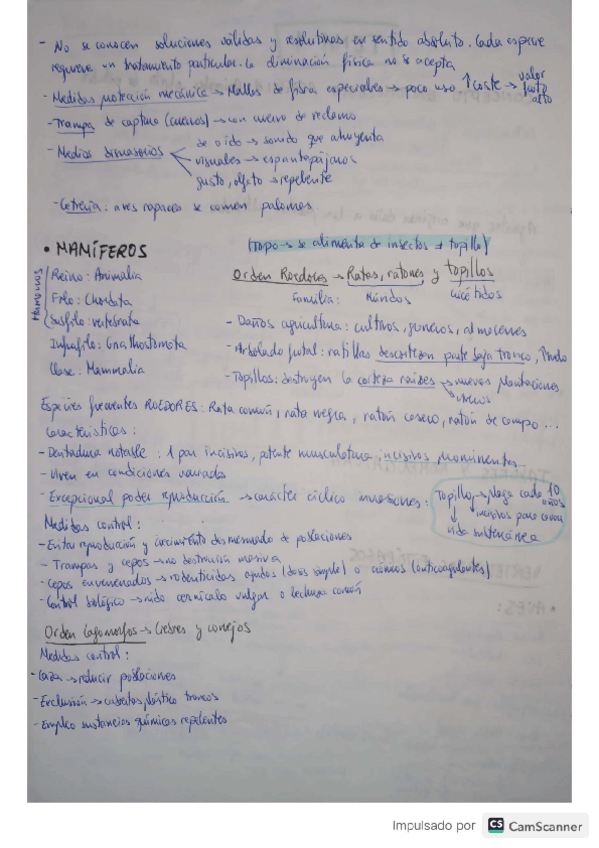 - No se conocen soluciones válidas y resolutivas en sentido absoluto. Cada especie
requiere un tratamiento particular. La eliminación física no se acepta
- Medidas protección mecánica → Mallas de fibra especiales → poco uso ↑coste → valor fruto alto
- Trampa de captura (cuervos) → con cuervo de reclamo
- Medios disuasorios
de oído → sonido que ahuyenta
visuales → espantapájaros
gusto, olfato → repelente
- Cetrería: aves rapaces se comen palomas.
• MAMÍFEROS
(Topo → se alimenta de insectos ≠ topillo)
Humanos
Reino: Animalia
Filo: Chordata
Subfilo: vertebrata
Infrafilo: Gnathostomata
Clase: Mammalia
Orden Roedores → Ratas, ratones y topillos
Familia: Múridos cricétidos
- Daños agricultura: cultivos, graneros, almacenes
- Arbolado frutal: ratillas descortezan parte baja tronco,
- Topillos: destruyen la corteza raíces → nuevas plantaciones
→ viveros
Especies frecuentes ROEDORES: Rata común, rata negra, ratón casero, ratón de campo ...
Características:
- Dentadura notable: 1 par incisivos, potente musculatura incisivos prominentes
- Viven en condiciones variadas
- Excepcional poder reproducción → carácter cíclico invasiones:
Topillo → plaga cada 10 años
↓ incisivos para cavar
vida subterránea
Medidas control:
- Evitar reproducción y crecimiento desmesurado de poblaciones
- Trampas y cepos → no destrucción masiva
- Cepos envenenados → rodenticidas agudos (dosis simple) o crónicos (anticoagulantes)
- Control biológico → nido cernícalo vulgar o lechuza común
Orden Lagomorfos → Liebres y conejos
Medidas control:
- Caza → reducir poblaciones
- Exclusión → cubiertas plástico troncos
- Empleo sustancias químicas repelentes
Impulsado por CS CamScanner